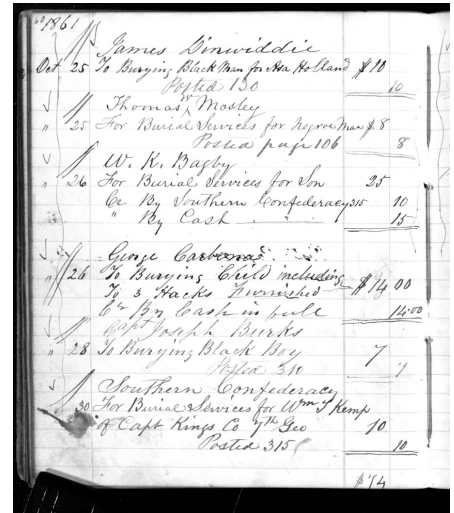 1861
James Dinwiddie
Oct 25 To Burying Black Man for Asa Holland $10
Posted 130 10
Thomas W Mosley
" 25 For Burial Services for Negroe Man $8
Posted page 106 8
W. K. Bagby
" 26 For Burial Services for Son 25
Cr By Southern Confederacy 315 10
" By Cash 15
George
" 26 To Burying Child including
To 3 Hacks Furnished $14 00
Cr By Cash in full 14.00
Capt Joseph Burks
" 28 To Burying Black Boy 7
Posted 310 7
Southern Confederacy
" 30 For Burial Services for Wm T Kemp
of Capt Kings Co 7th Geo 10
Posted 315 10
$74